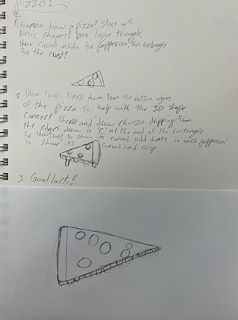 pizza!
how draw a pizza? Start with
basic shapes! one large triangle,
three circles inside for pepperoni, then rectangle
for the crust!
2. Draw two lines down from the bottom edges
of the pizza to help with the 3D shape.
Connect them and draw cheese dripping from
the edges, draw a "C" at the end of the rectangle
for the crust to show the curved
to show its curved and crisp
3. Good luck!!